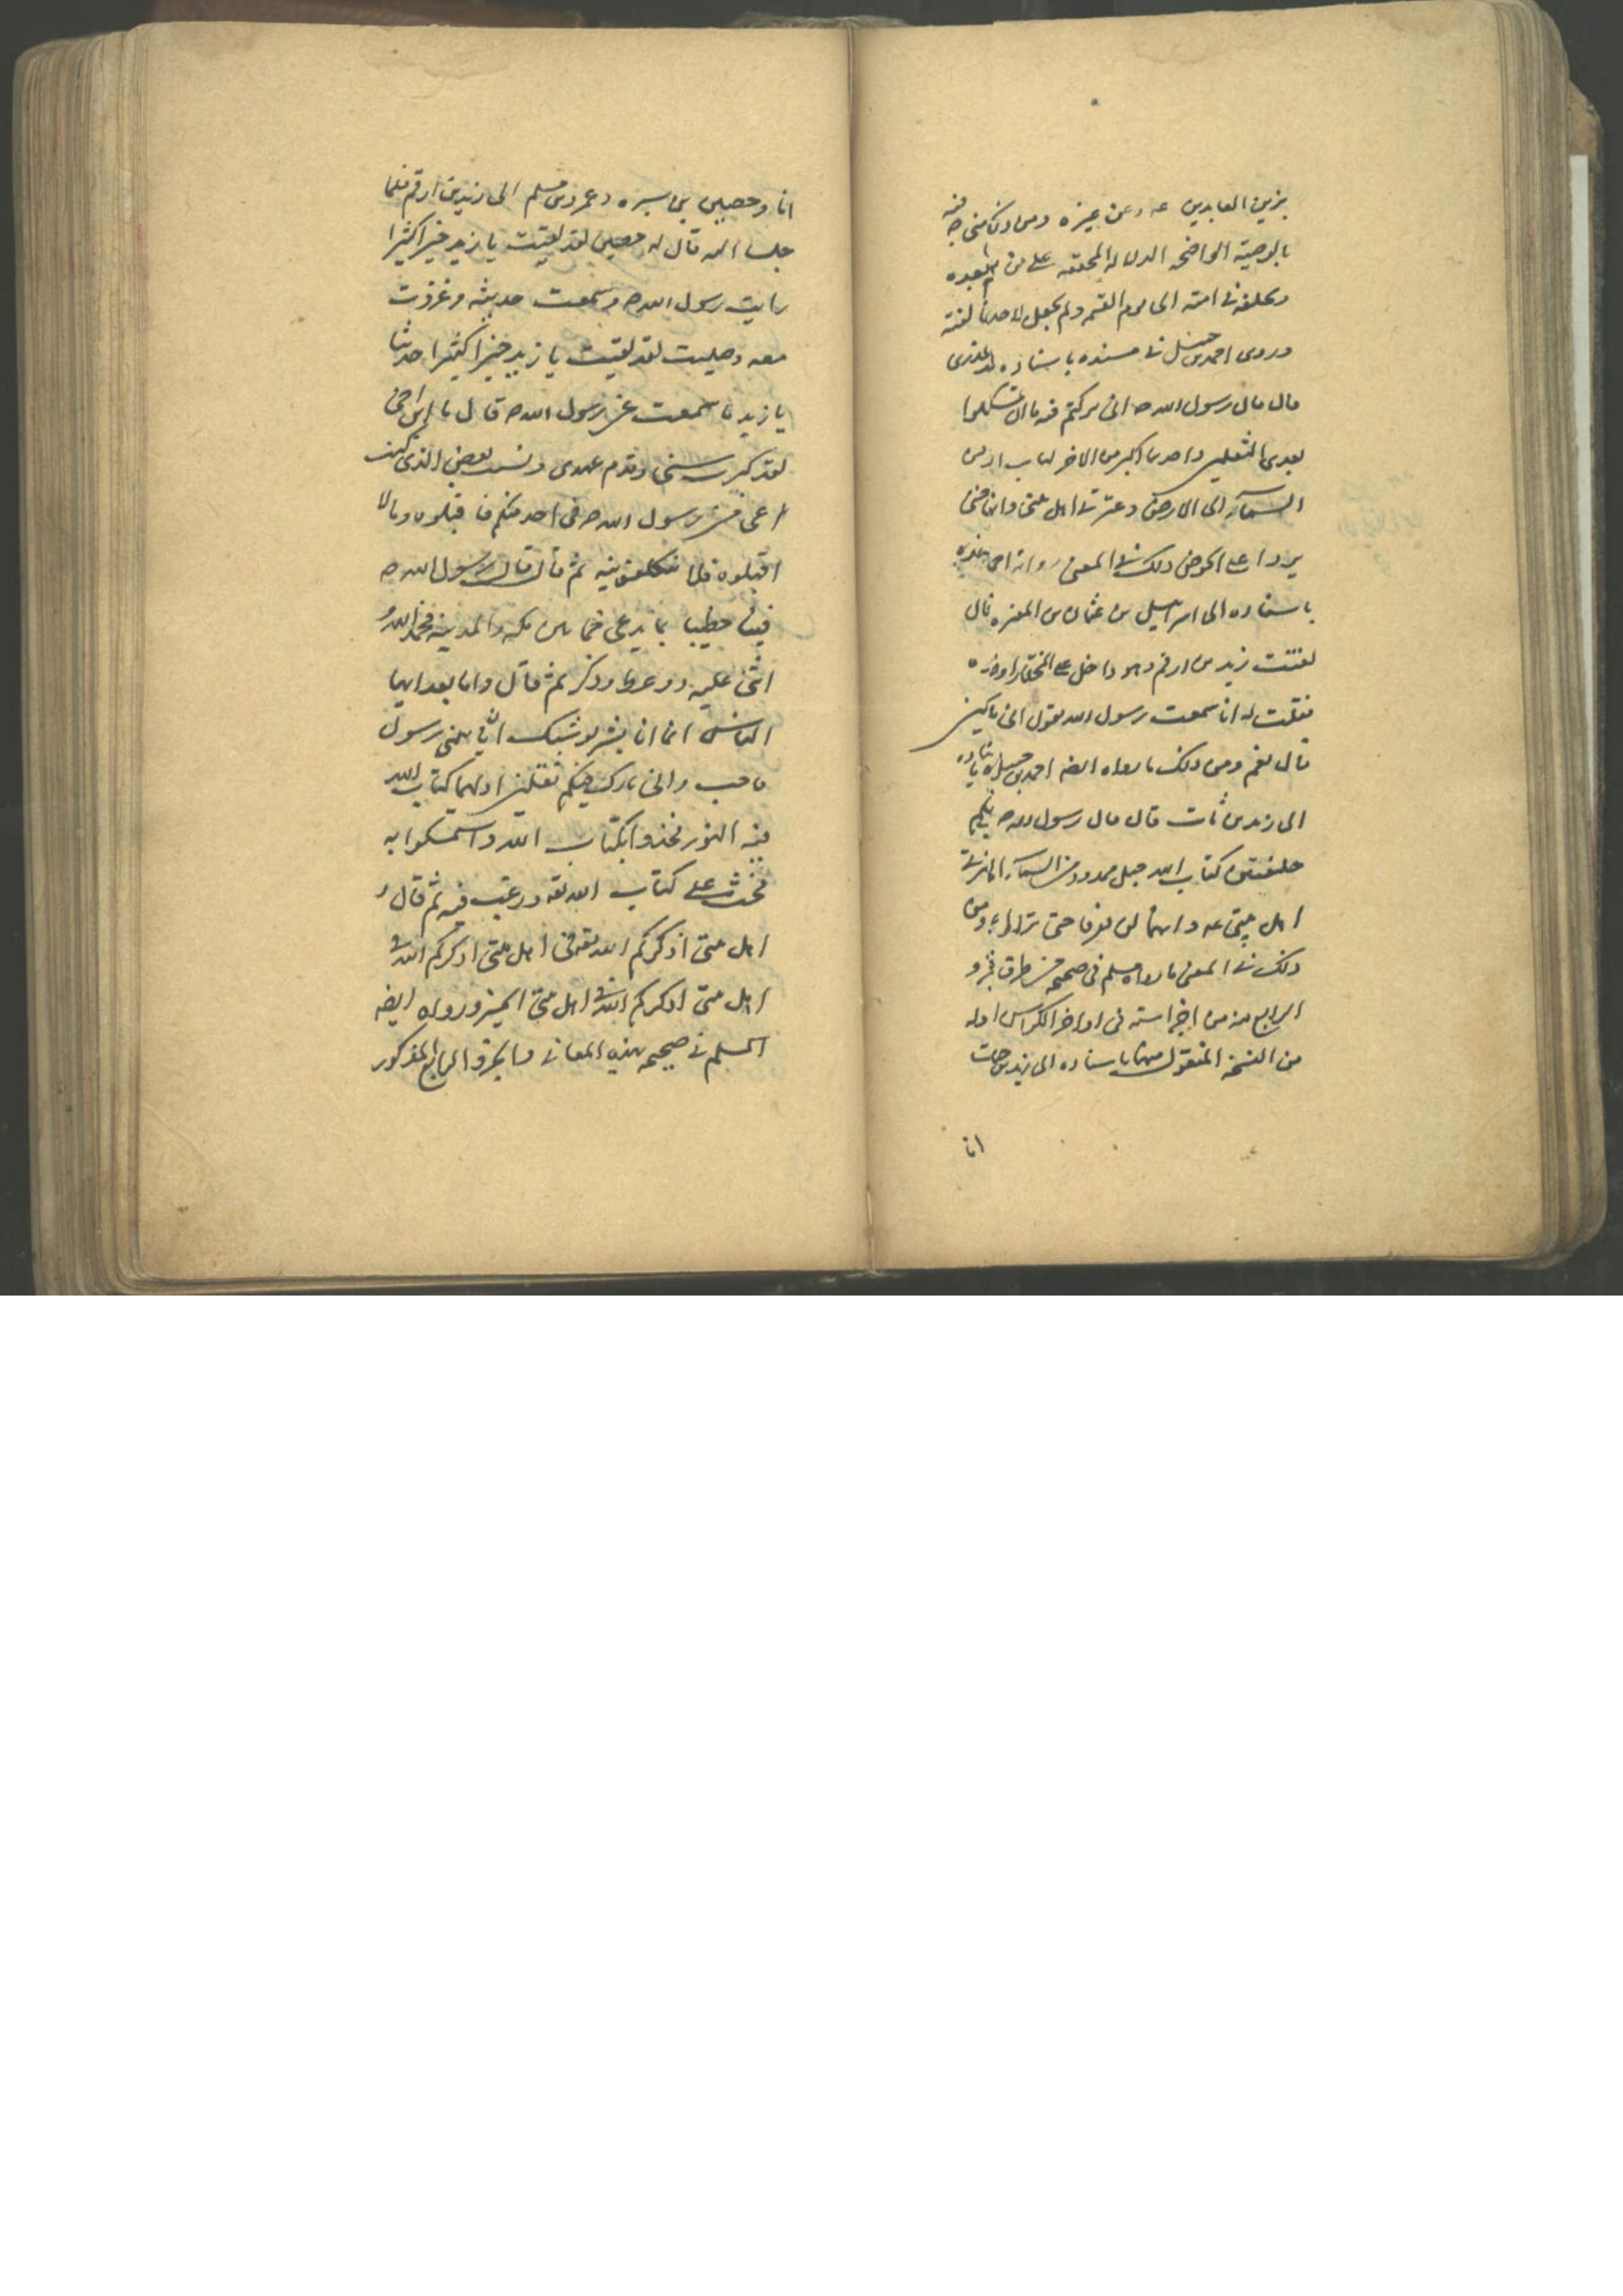 بزين العابدين عه وعن غيره ومن ذلك
بالوصية الواضحه الدلاله المحققه على من بعده
ويخلفه في امته الى يوم القيمه ولم يجعل لاحد
وروى احمد بن حنبل في مسنده باسناده
قال قال رسول الله ص انى تركت فيكم ما ان تمسكتم
بعدى الثقلين واحدهما اكبر من الاخر كتاب
السمآء الى الارض وعترتى اهل بيتى وانهما
يردا على الحوض ومن ذلك في المعنى رواية احمد
باسناده الى اسرائيل بن عثمان بن المغيره قال
لقيت زيد بن ارقم وهو داخل على المختار او
فقلت له انا سمعت رسول الله يقول انى تارك
قال نعم ومن ذلك ما رواه ايضه احمد بن حنبل باسناده
الى زيد بن ثابت قال قال رسول الله ص
خليفتين كتاب الله حبل ممدود من السمآء
اهل بيتى عه وانهما لن يفرقا حتى ومن
ذلك في المعنى ما رواه مسلم في صحيحه من طرق
الرابع منه من اجزآء سته في اواخر الكراس اوله
من النسخه المنقول منها باسناده الى يزيد بن حيان
انا
انا وحصين بن سبره وعمر بن مسلم الى زيد بن ارقم فلما
جلسنا اليه قال له حصين لقد لقيت يا زيد خيرا كثيرا
رايت رسول الله ص وسمعت حديثه وغزوت
معه وصليت لقد لقيت يا زيد خيرا كثيرا حدثنا
يا زيد ما سمعت من رسول الله ص قال يا ابن اخى
لقد كبرت سنى وقدم عهدى ونسيت بعض الذى كنت
اعى من رسول الله ص فما حدثتكم فاقبلوه وما لا
اقبلوه فلا تكلفونيه ثم قال قام رسول الله ص
فينا خطيبا بما يدعى خما بين مكه والمدينه فحمد الله و
اثنى عليه ووعظ وذكر ثم قال واما بعد ايها
الناس انما انا بشر يوشك ان ياتينى رسول
فاجيب وانى تارك فيكم ثقلين اولهما كتاب الله
فيه النور فخذوا بكتاب الله واستمسكوا به
فحث على كتاب الله تعه ورغب فيه ثم قال و
اهل بيتى اذكركم الله تعه فى اهل بيتى اذكركم الله في
اهل بيتى اذكركم الله في اهل بيتى الخبر ورواه ايضه
المسلم في صحيحه بهذه المعانى في الجزو الرابع المذكور